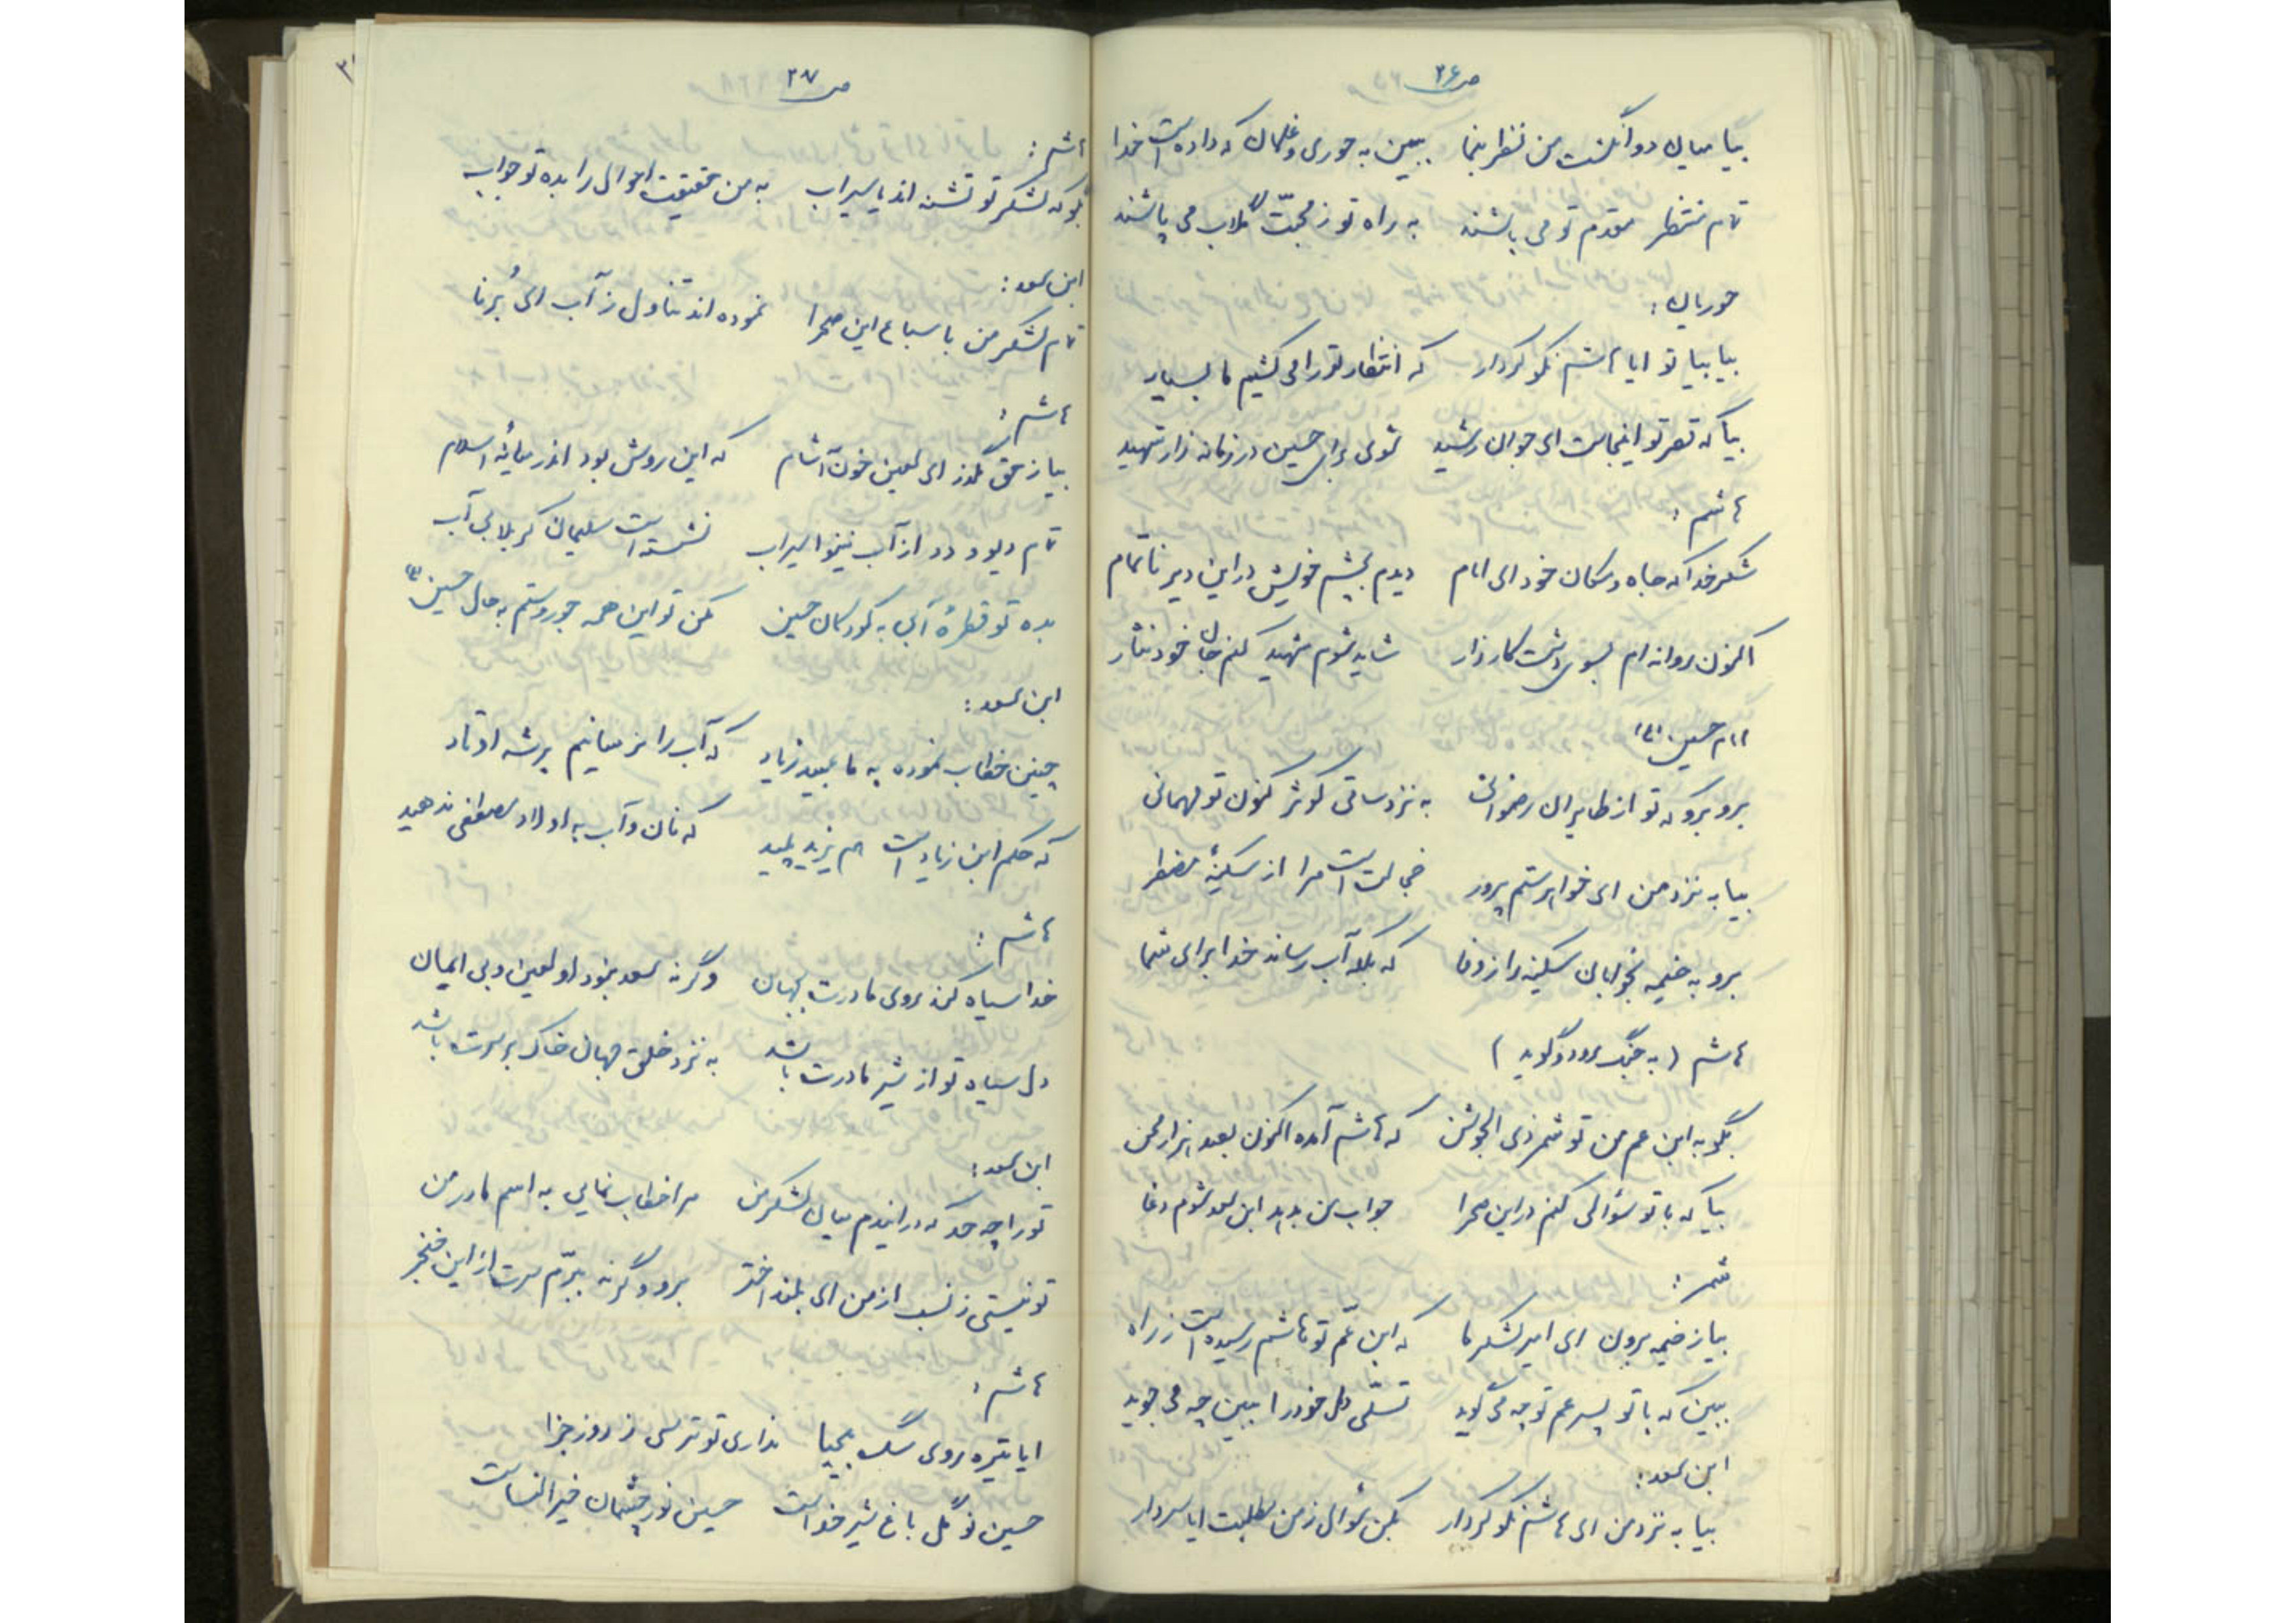 ص ۲۶
بیا میان دو انگشت من نظر بنما ببین به حوری و غلمان که داده است خدا
تمام منتظر مقدم تو می باشند به راه تو ز محبّت گلاب می پاشند
حوریان:
بیا بیا تو ایا هاشم نکو کردار که انتظار تو را می کشیم ما بسیار
بیا که قصر تو اینجاست ای جوان رشید شوی برای حسین در زمانه زار شهید
هاشم:
شکر خدا که جاه و مکان خود ای امام دیدم بچشم خویش در این دیر ناتمام
اکنون روانه ام بسوی دشت کارزار شاید شوم شهید کنم جان خود نثار
امام حسین (ع)
برو برو که تو از طایران رضوانی به نزد ساقی کوثر کنون تو مهمانی
بیا به نزد من ای خواهر ستم پرور خجالت است مرا از سکینهٔ مضطر
برو به خیمه بخوابان سکینه را ز وفا که بلکه آب رساند خدا برای شما
هاشم (به جنگ رود و گوید)
بگو به ابن عم من تو شمر ذی الجوشن که هاشم آمده اکنون بصد هزار محن
بیا که با تو سؤالی کنم در این صحرا جواب من بدهد ابن سعد شوم دغا
شمر:
بیا ز خیمه برون ای امیر لشکر ما که ابن عّم تو هاشم رسیده است ز راه
ببین که با تو پسر عم تو چه می گوید تسلّی دل خود را ببین چه می جوید
ابن سعد:
بیا به نزد من ای هاشم نکو کردار بکن سؤال ز من مطلبت ایا سردار
ص ۲۷
هاشم:
بگو که لشکر تو تشنه اند یا سیراب به من حقیقت احوال را بده تو جواب
ابن سعد:
تمام لشکر من با سباع این صحرا نموده اند تناول ز آب ای بُرنا
هاشم:
بیا ز حق گذر ای لعین خون آشام که این روش بود اندر میانهٔ اسلام
تمام دیو و دد از آب نینوا سیراب نشسته است سلیمان کربلا بی آب
بده تو قطرهٔ آبی به کودکان حسین مکن تو این همه جور و ستم به حال حسین (ع)
ابن سعد:
چنین خطاب نموده به ما عبید زیاد که آب را نرسانیم بر شه اوتاد
که حکم ابن زیاد است هم یزید پلید که نان و آب به اولاد مصطفی ندهید
هاشم:
خدا سیاه کند روی مادرت بجهان وگرنه سعد نبود او لعین و بی ایمان
دل سیاه تو از شیر مادرت باشد به نزد خلق جهان خاک بر سرت باشد
ابن سعد:
تو را چه حد که در ایندم میان لشکر من مرا خطاب نمایی به اسم مادر من
تو نیستی ز نسب از من ای بلند اختر برو وگرنه ببرّم سرت از این خنجر
هاشم:
ایا تیره روی سگ بیحیا نداری تو ترسی ز روز جزا
حسین نوگل باغ شیر خداست حسین نور چشمان خیرالنساست